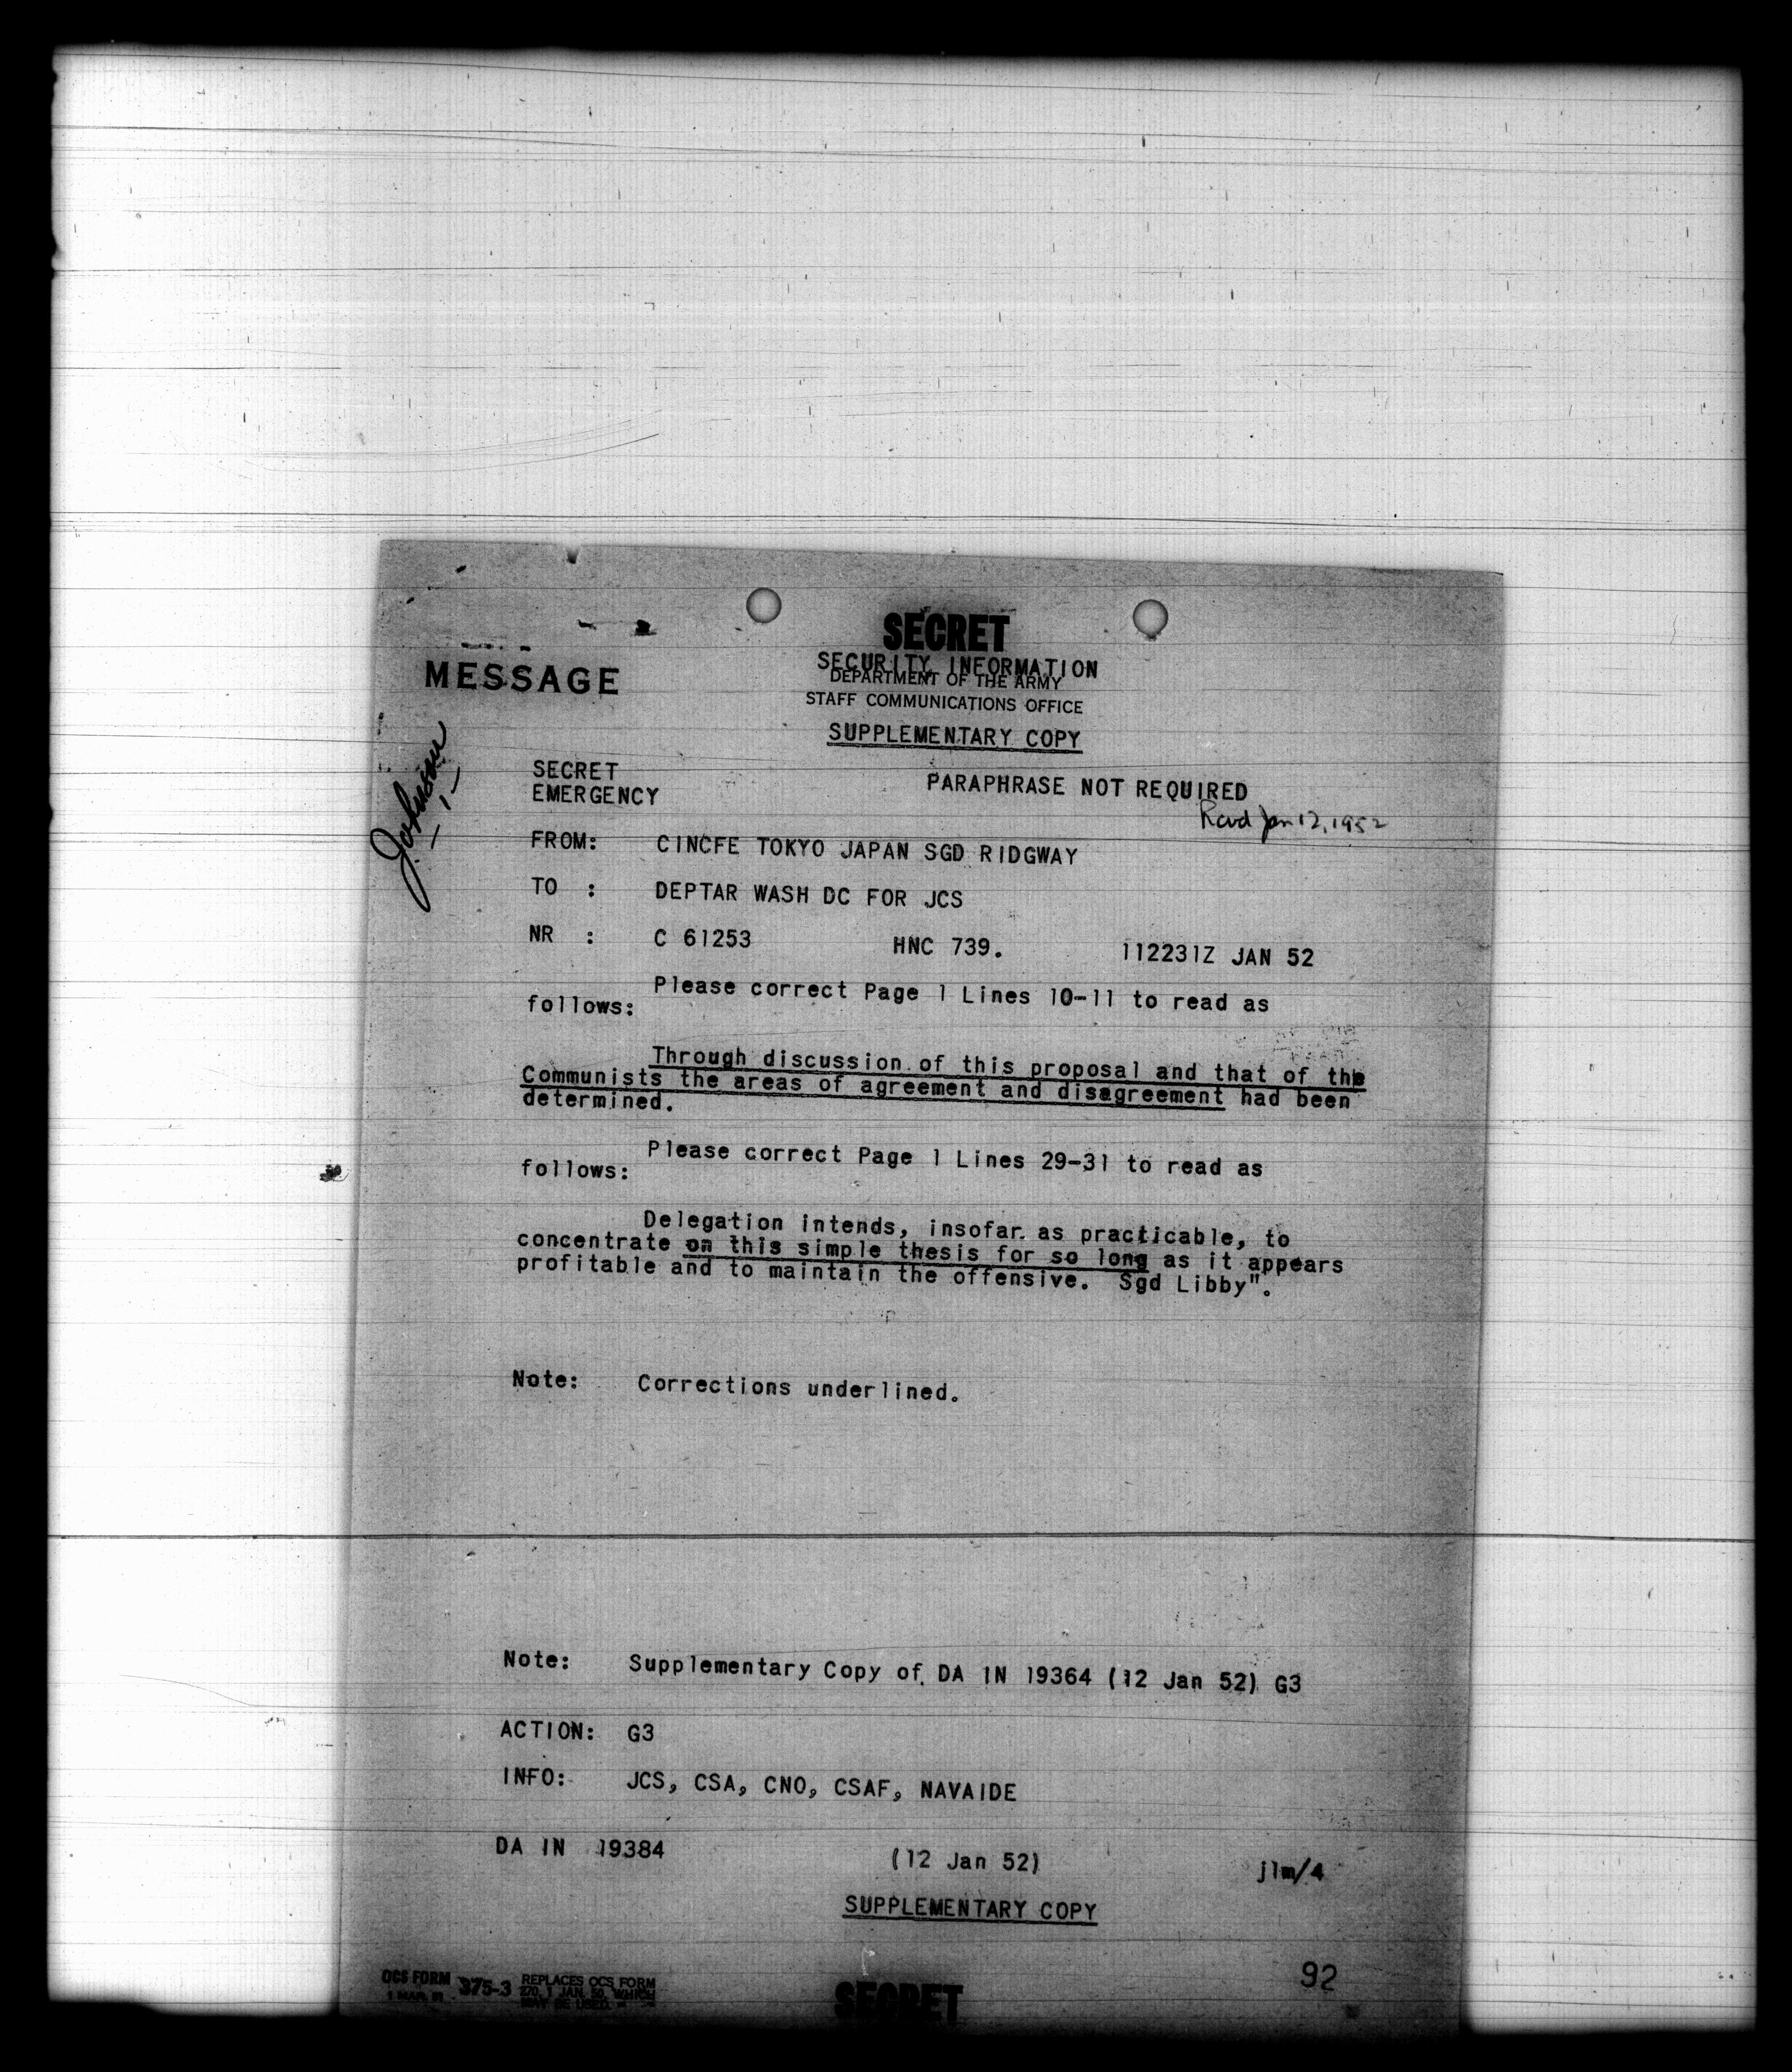 SECRET
SECURITY INFORMATION
MESSAGE
DEPARTMENT OF THE ARMY
STAFF COMMUNICATIONS OFFICE
SUPPLEMENTARY COPY
Johnson
SECRET
PARAPHRASE NOT REQUIRED
EMERGENCY
Rcvd Jan 12, 1952
FROM: CINCFE TOKYO JAPAN SGD RIDGWAY
TO : DEPTAR WASH DC FOR JCS
NR : C 61253 HNC 739. 112231Z JAN 52
Please correct Page 1 Lines 10-11 to read as
follows:
Through discussion of this proposal and that of the
Communists the areas of agreement and disagreement had been
determined.
Please correct Page 1 Lines 29-31 to read as
follows:
Delegation intends, insofar as practicable, to
concentrate on this simple thesis for so long as it appears
profitable and to maintain the offensive. Sgd Libby".
Note: Corrections underlined.
Note: Supplementary Copy of DA IN 19364 (12 Jan 52) G3
ACTION: G3
INFO: JCS, CSA, CNO, CSAF, NAVAIDE
DA IN 19384 (12 Jan 52) jlm/4
SUPPLEMENTARY COPY
92
OCS FORM 375-3 REPLACES OCS FORM
1 MAR 51 270, 1 JAN. 50, WHICH
MAY BE USED.
SECRET